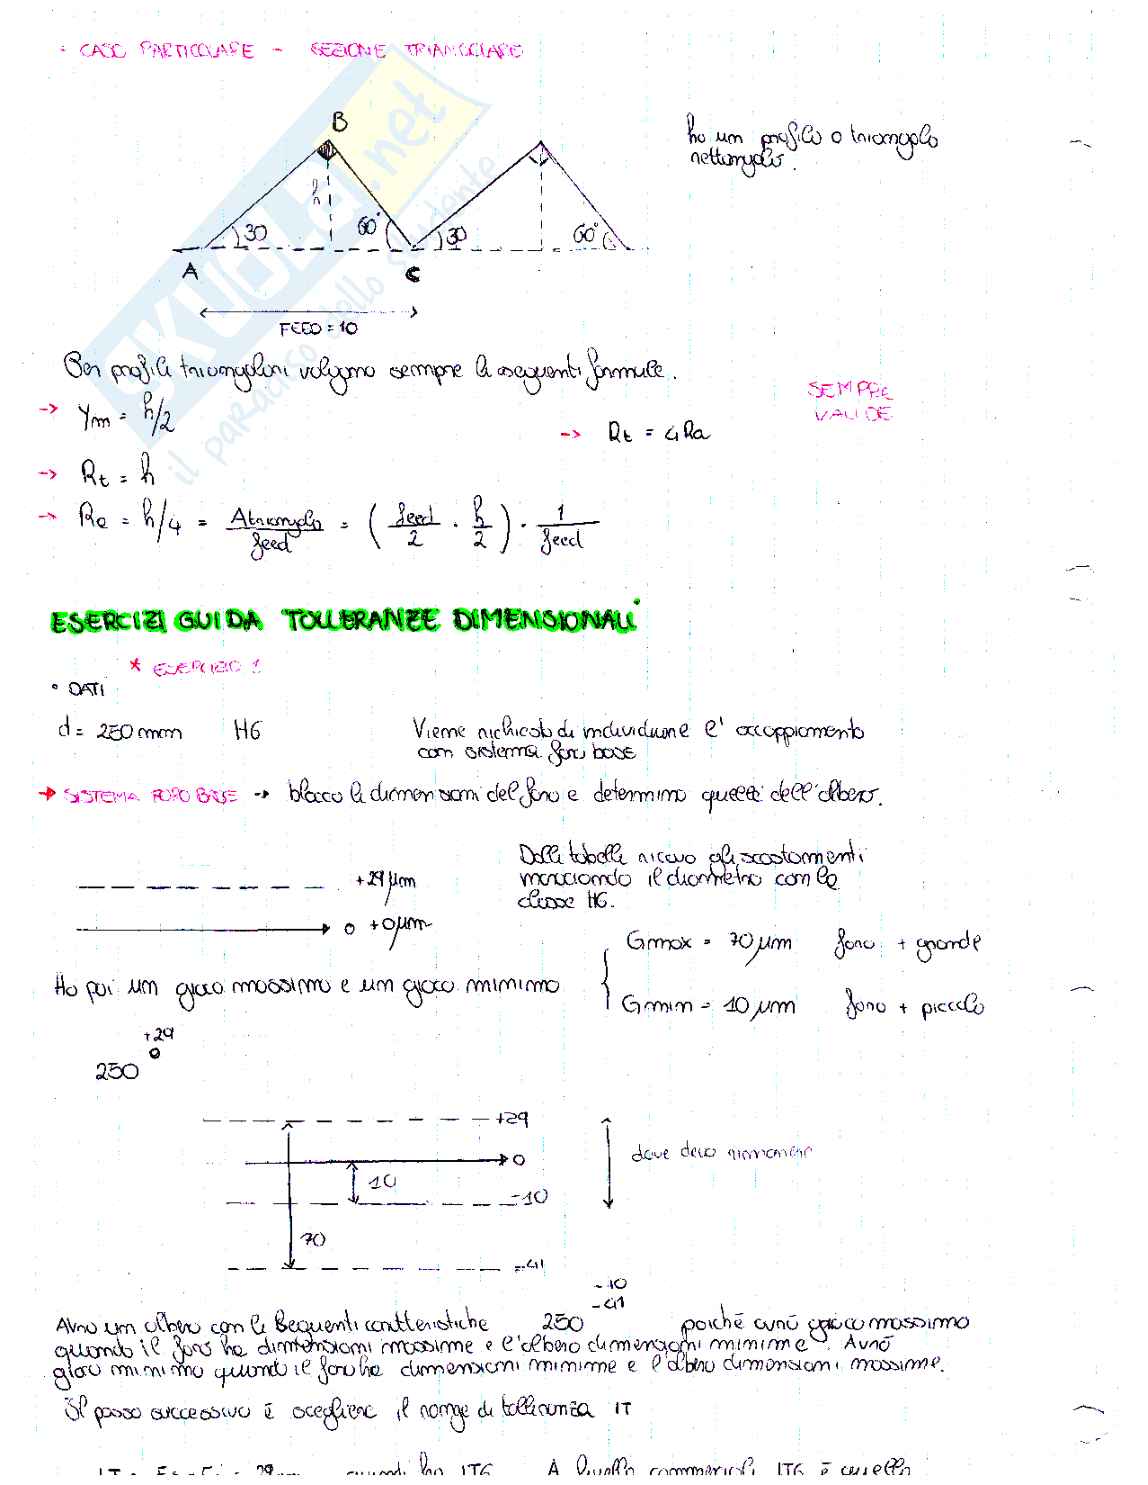 CASO PARTICOLARE - SEZIONE TRIANGOLARE
B
ho un profilo a triangolo
rettangolo.
h
30
60°
30
60°
A
C
FEED = 10
Per profili triangolari valgono sempre le seguenti formule.
SEMPRE
VALIDE
→ Ym = h/2
→ Rt = 4Ra
→ Rt = h
→ Ra = h/4 = Atriangolo/feed = (feed/2 · h/2) · 1/feed
ESERCIZI GUIDA TOLLERANZE DIMENSIONALI
* ESERCIZIO 1
• DATI
d = 250 mm H6 Viene richiesto di individuare l'accoppiamento
con sistema foro base
→ SISTEMA FORO BASE → blocco le dimensioni del foro e determino quelle dell'albero.
Dalle tabelle ricavo gli scostamenti
incrociando il diametro con la
classe H6.
+29 μm
0 +0 μm
Gmax = 70 μm foro + grande
Ho poi un gioco massimo e un gioco minimo
Gmin = 10 μm foro + piccolo
+29
0
250
+29
0
dove devo rimanere
10
-10
70
-41
-10
-41
Avrò un albero con le seguenti caratteristiche 250 poiché avrò gioco massimo
quando il foro ha dimensioni massime e l'albero dimensioni minime. Avrò
gioco minimo quando il foro ha dimensioni minime e l'albero dimensioni massime.
Il passo successivo è scegliere il range di tolleranza IT
quindi ho IT6 A livello commerciale IT6 è quella
SKUOLA.net
il paradiso dello studente